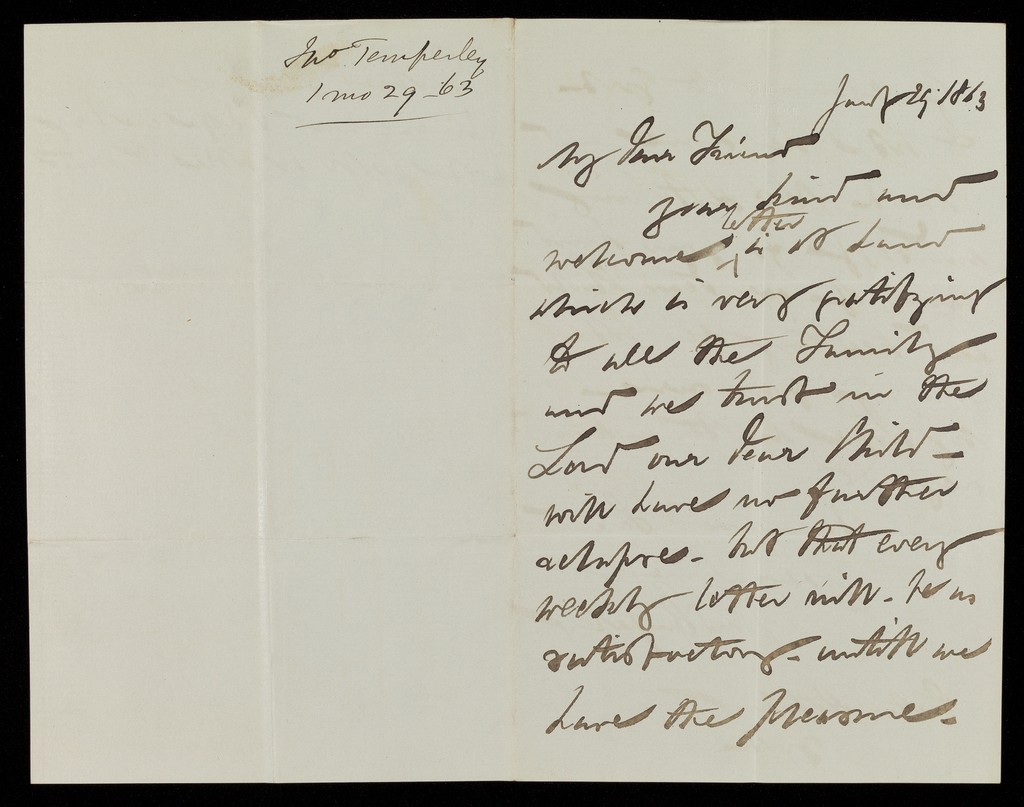 Jno Temperley
1 mo 29 - 63
Jany 29. 1863
My Dear Friend
your kind and
letter
welcome is at hand
which is very gratifying
to all the Family
and we trust in the
Lord our Dear Child -
will have no further
relapse - but that every
weekly letter will - be as
satisfactory - untill we
have the pleasure -